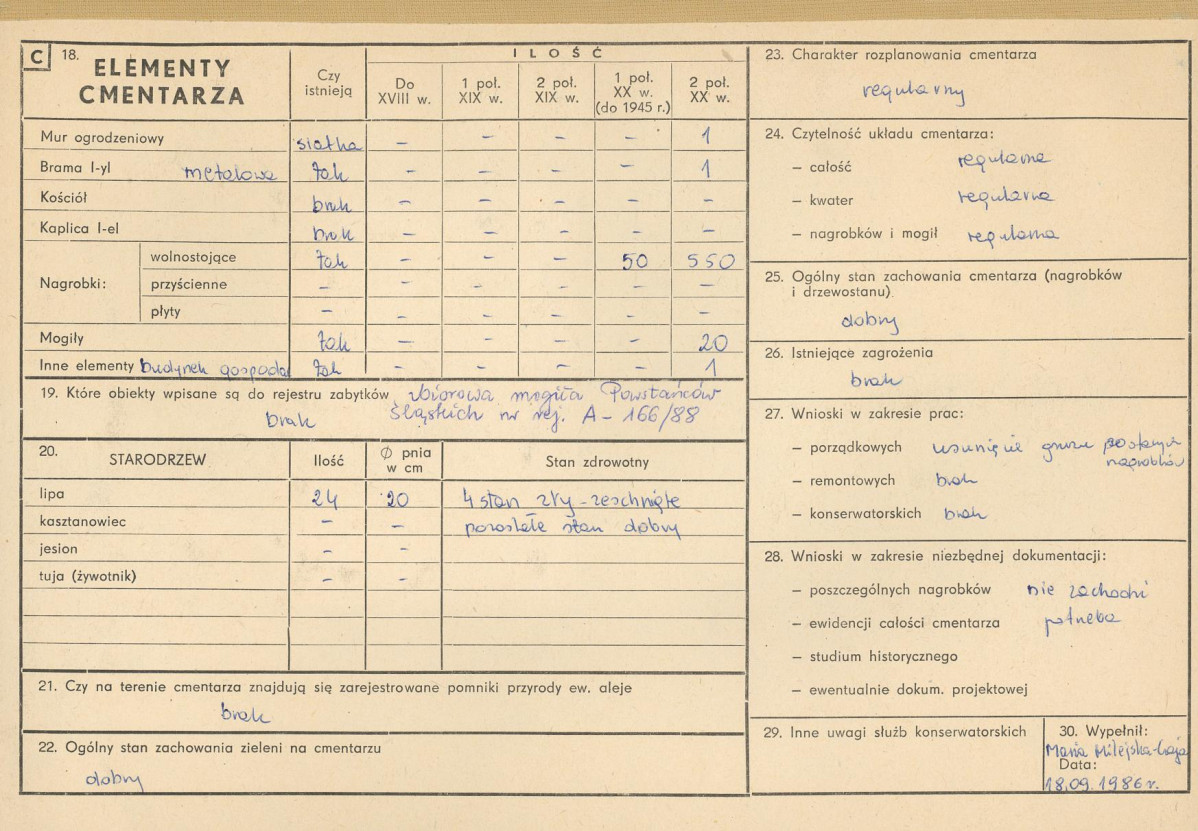 C 18. ELEMENTY CMENTARZA
Czy istnieją
ILOŚĆ
Do XVIII w.
1 poł. XIX w.
2 poł. XIX w.
1 poł. XX w. (do 1945 r.)
2 poł. XX w.
Mur ogrodzeniowy siatka – – – – 1
Brama I-yl metalowa tak – – – – 1
Kościół brak – – – – –
Kaplica I-el brak – – – – –
Nagrobki:
wolnostojące tak – – – 50 550
przyścienne – – – – – –
płyty – – – – – –
Mogiły tak – – – – 20
Inne elementy budynek gospoda tak – – – – 1
19. Które obiekty wpisane są do rejestru zabytków zbiorowa mogiła Powstańców
brak Śląskich nr rej. A – 166/88
20. STARODRZEW Ilość Ø pnia w cm Stan zdrowotny
lipa 24 20 4 stan zły – zeschnięte
kasztanowiec – – pozostałe stan dobry
jesion – –
tuja (żywotnik) – –
21. Czy na terenie cmentarza znajdują się zarejestrowane pomniki przyrody ew. aleje
brak
22. Ogólny stan zachowania zieleni na cmentarzu
dobry
23. Charakter rozplanowania cmentarza
regularny
24. Czytelność układu cmentarza:
– całość regularna
– kwater regularna
– nagrobków i mogił regularna
25. Ogólny stan zachowania cmentarza (nagrobków
i drzewostanu)
dobry
26. Istniejące zagrożenia
brak
27. Wnioski w zakresie prac:
– porządkowych usunięcie gruzu po starych
nagrobków
– remontowych brak
– konserwatorskich brak
28. Wnioski w zakresie niezbędnej dokumentacji:
– poszczególnych nagrobków nie zachodzi
– ewidencji całości cmentarza potrzeba
– studium historycznego
– ewentualnie dokum. projektowej
29. Inne uwagi służb konserwatorskich
30. Wypełnił:
Maria
Data:
18.09.1986 r.